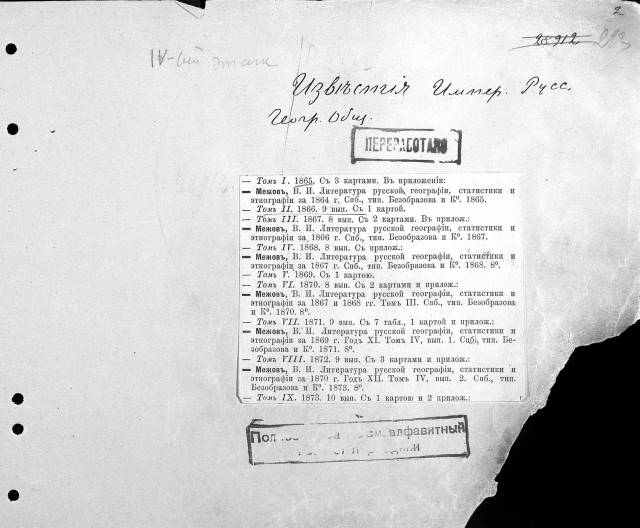 2
28912
IV-ый этаж
Извѣстія Импер. Русс.
Геогр. Общ.
ПЕРЕРАБОТАНО
— Томъ I. 1865. Съ 3 картами. Въ приложеніи:
— Межовъ, В. И. Литература русской географіи, статистики и
этнографіи за 1864 г. Спб., тип. Безобразова и Ко. 1865.
— Томъ II. 1866. 9 вып. Съ 1 картой.
— Томъ III. 1867. 8 вып. Съ 2 картами. Въ прилож.:
— Межовъ, В. И. Литература русской географіи, статистики и
этнографіи за 1866 г. Спб., тип. Безобразова и Ко. 1867.
— Томъ IV. 1868. 8 вып. Съ прилож.:
— Межовъ, В. И. Литература русской географіи, статистики и
этнографіи за 1867 г. Спб., тип. Безобразова и Ко. 1868. 8о.
— Томъ V. 1869. Съ 1 картою.
— Томъ VI. 1870. 8 вып. Съ 2 картами и прилож.:
— Межовъ, В. И. Литература русской географіи, статистики и
этнографіи за 1867 и 1868 гг. Томъ III. Спб., тип. Безобразова
и Ко. 1870. 8о.
— Томъ VII. 1871. 9 вып. Съ 7 табл., 1 картой и прилож.:
— Межовъ, В. И. Литература русской географіи, статистики и
этнографіи за 1869 г. Годъ XI. Томъ IV, вып. 1. Спб., тип. Бе-
зобразова и Ко. 1871. 8о.
— Томъ VIII. 1872. 9 вып. Съ 3 картами и прилож.:
— Межовъ, В. И. Литература русской географіи, статистики и
этнографіи за 1870 г. Годъ XII. Томъ IV, вып. 2. Спб., тип.
Безобразова и Ко. 1873. 8о.
— Томъ IX. 1873. 10 вып. Съ 1 картою и 2 прилож.:
алфавитный